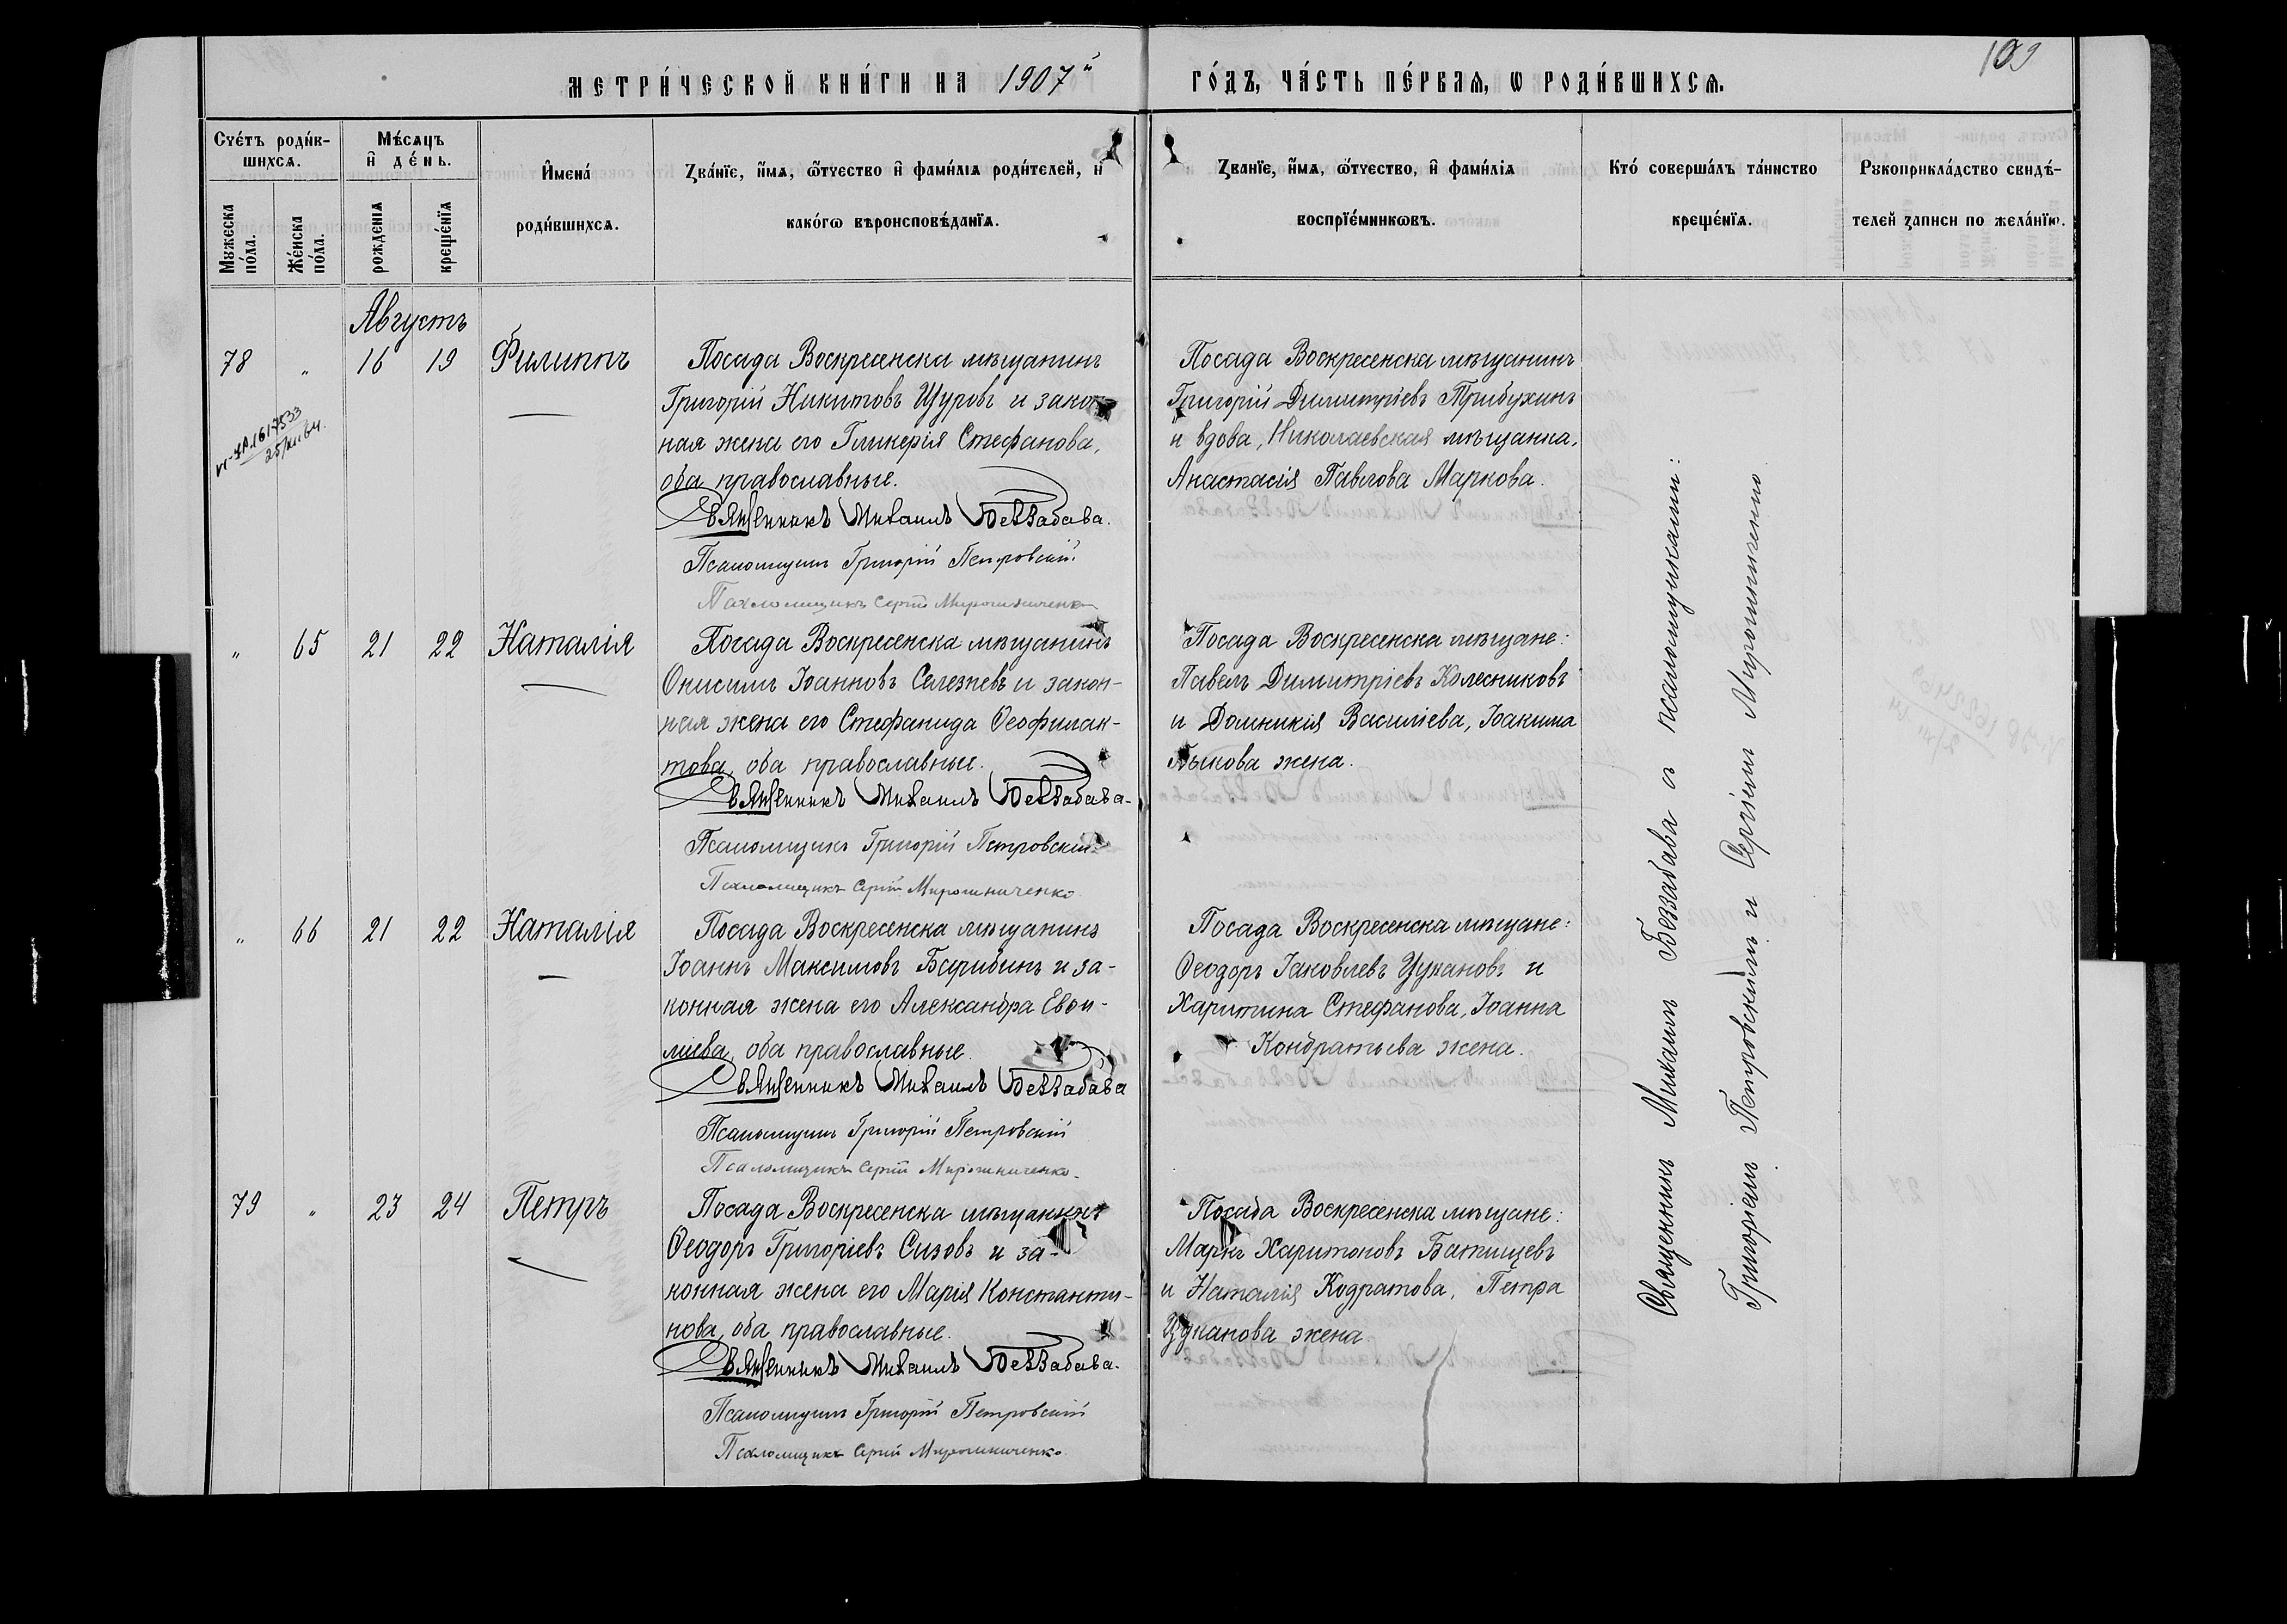 109
МЕТРИ́ЧЕСКОЙ КНИ́ГИ НА 1907й
ГО́ДЪ, ЧА́СТЬ ПЕ́РВАѦ, Ѡ РОДИ́ВШИХСѦ.
Сче́тъ роди́в-
шихсѧ.
Мꙋжеска
по́ла.
Же́нска
по́ла.
Мѣ́сѧцъ
и҆ де́нь.
рожденїѧ
креще́нїѧ
И҆мена́
роди́вшихсѧ.
Зва́нїе, и҆́мѧ, ѻ҆́тчество и҆ фами́лїѧ роди́телей, и҆
како́гѡ вѣроисповѣ́данїѧ.
Зва́нїе, и҆́мѧ, ѻ҆́тчество, и҆ фами́лїѧ
воспрїе́мникѡвъ.
Кто́ соверша́лъ та́инство
креще́нїѧ.
Рꙋкоприкла́дство свидѣ́-
телей записи по жела́нїю.
Августъ
78 " 16 19 Филиппъ
25/XII 64
Посада Воскресенска мѣщанинъ
Григорій Никитовъ Щуровъ и закон-
ная жена его Гликерія Стефанова,
оба православные.
Священникъ Михаилъ Беззабава.
Псаломщикъ Григорій Петровскій.
Псаломщикъ Сергій Мирошниченко
Посада Воскресенска мѣщанинъ
Григорій Димитріевъ Трибухинъ
и вдова, Николаевская мѣщанка,
Анастасія Павлова Маркова.
" 65 21 22 Наталія
Посада Воскресенска мѣщанинъ
Онисимъ Іоанновъ Селезневъ и закон-
ная жена его Стефанида Ѳеофилак-
това, оба православные.
Священникъ Михаилъ Беззабава.
Псаломщикъ Григорій Петровскій.
Псаломщикъ Сергій Мирошниченко
Посада Воскресенска мѣщане:
Павелъ Димитріевъ Колесниковъ
и Домникія Василіева, Іоакима
Быкова жена.
" 66 21 22 Наталія
Посада Воскресенска мѣщанинъ
Іоаннъ Максимовъ и за-
конная жена его Александра Евѳи-
міева, оба православные.
Священникъ Михаилъ Беззабава
Псаломщикъ Григорій Петровскій
Псаломщикъ Сергій Мирошниченко.
Посада Воскресенска мѣщане:
Ѳеодоръ Іаковлевъ Цукановъ и
Харитина Стефанова, Іоанна
Кондратьева жена.
79 " 23 24 Петръ
Посада Воскресенска мѣщанинъ
Ѳеодоръ Григоріевъ Сизовъ и за-
конная жена его Марія Константи-
нова, оба православные.
Священникъ Михаилъ Беззабава.
Псаломщикъ Григорій Петровскій
Псаломщикъ Сергій Мирошниченко
Посада Воскресенска мѣщане:
Маркъ Харитоновъ Батищевъ
и Наталія Кодратова, Петра
Цуканова жена
Священникъ Михаилъ Беззабава съ псаломщиками:
Григоріемъ Петровскимъ и Сергіемъ Мирошниченко